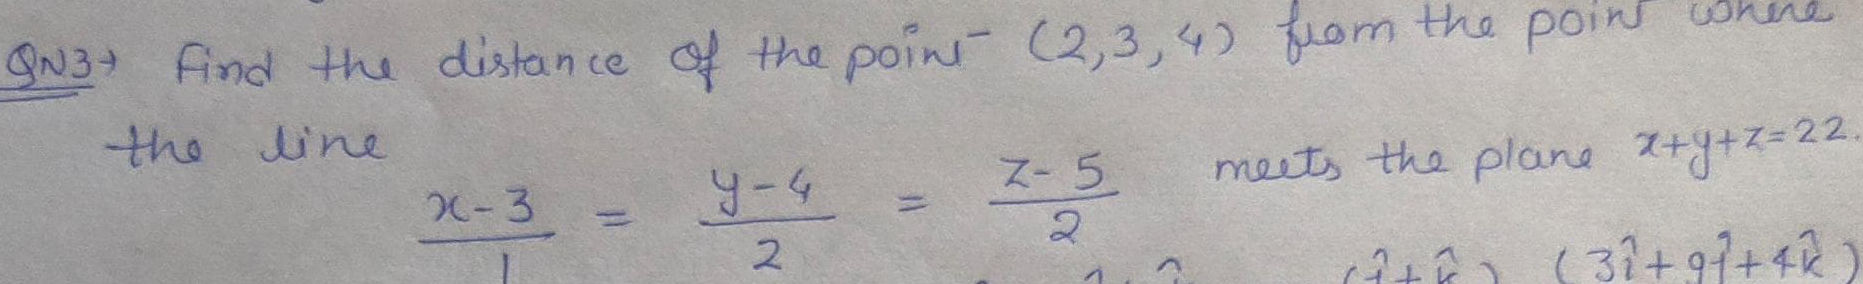 QN3→ Find the distance of the point (2,3,4) from the point where
the line
x-3/1 = y-4/2 = z-5/2 meets the plane x+y+z=22.
(î+k̂) (3î+9ĵ+4k̂)